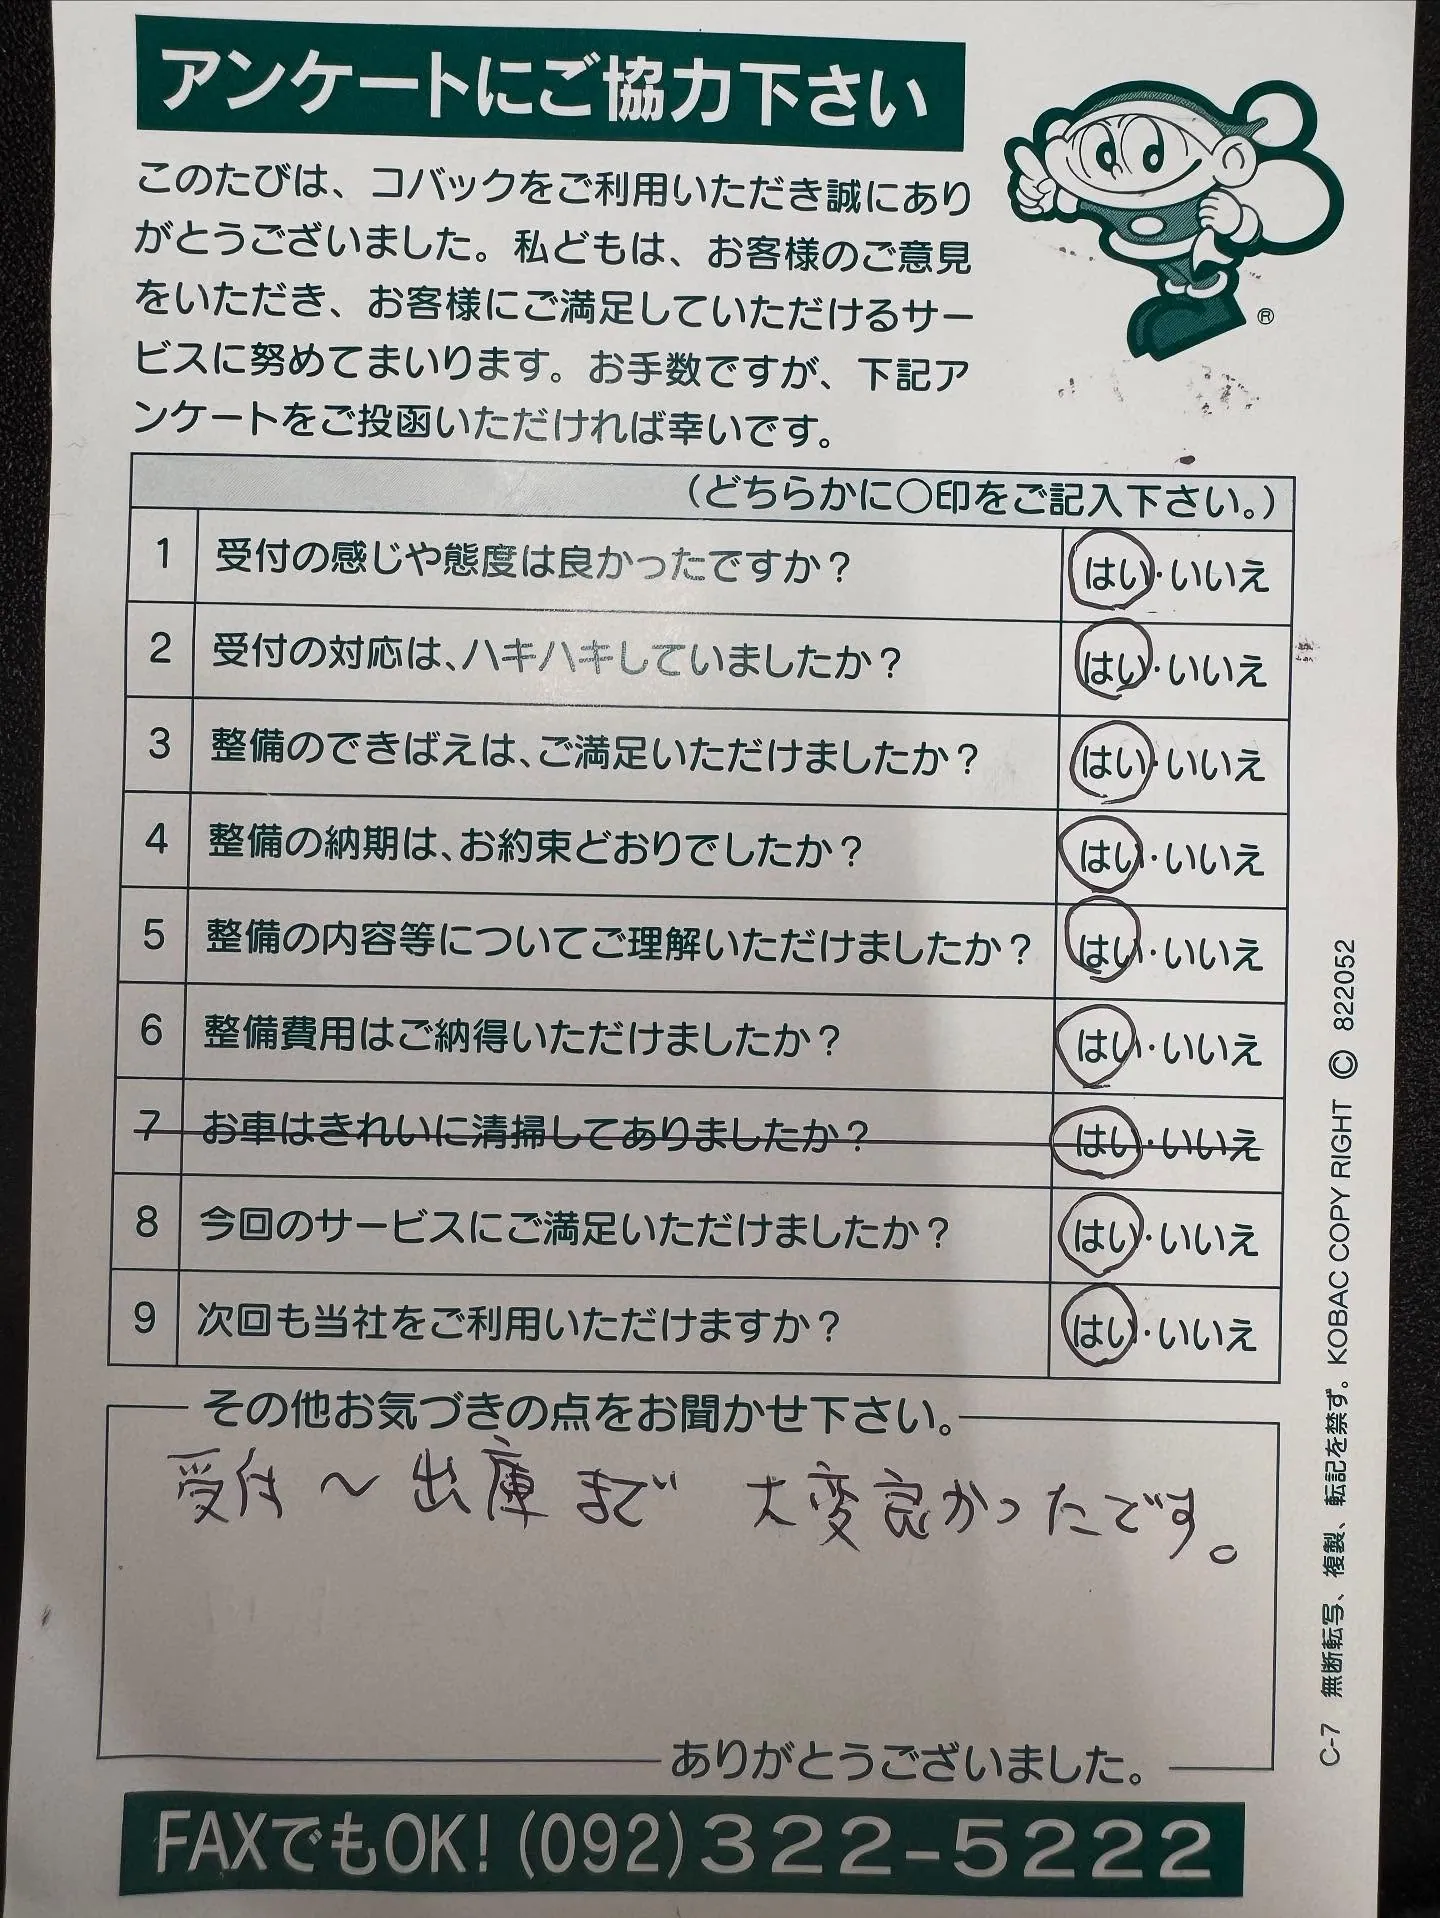 アンケートにご協力下さい
このたびは、コバックをご利用いただき誠にあり
がとうございました。私どもは、お客様のご意見
をいただき、お客様にご満足していただけるサー
ビスに努めてまいります。お手数ですが、下記ア
ンケートをご投函いただければ幸いです。
®
(どちらかに○印をご記入下さい。)
1 受付の感じや態度は良かったですか? はい・いいえ
2 受付の対応は、ハキハキしていましたか? はい・いいえ
3 整備のできばえは、ご満足いただけましたか? はい・いいえ
4 整備の納期は、お約束どおりでしたか? はい・いいえ
5 整備の内容等についてご理解いただけましたか? はい・いいえ
6 整備費用はご納得いただけましたか? はい・いいえ
7 お車はきれいに清掃してありましたか? はい・いいえ
8 今回のサービスにご満足いただけましたか? はい・いいえ
9 次回も当社をご利用いただけますか? はい・いいえ
その他お気づきの点をお聞かせ下さい。
受付〜出庫まで 大変良かったです。
ありがとうございました。
FAXでもOK!(092)322-5222
C-7 無断転写、複製、転記を禁ず。KOBAC COPY RIGHT © 822052